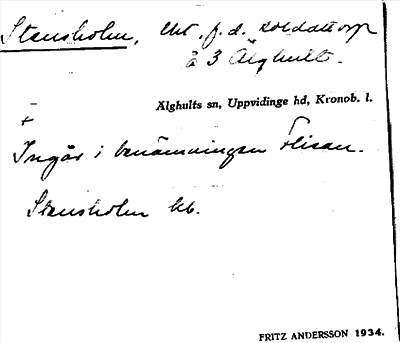 Stensholm, lht, f.d. soldattorp
å 3 Älghult.
Älghults sn, Uppvidinge hd, Kronob. l.
+
Ingår i benämningen Flisan.
Stensholm kb.
FRITZ ANDERSSON 1934.